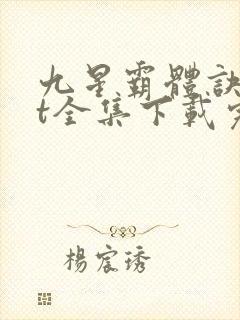 九星霸體訣
t全集下載
楊宸琇